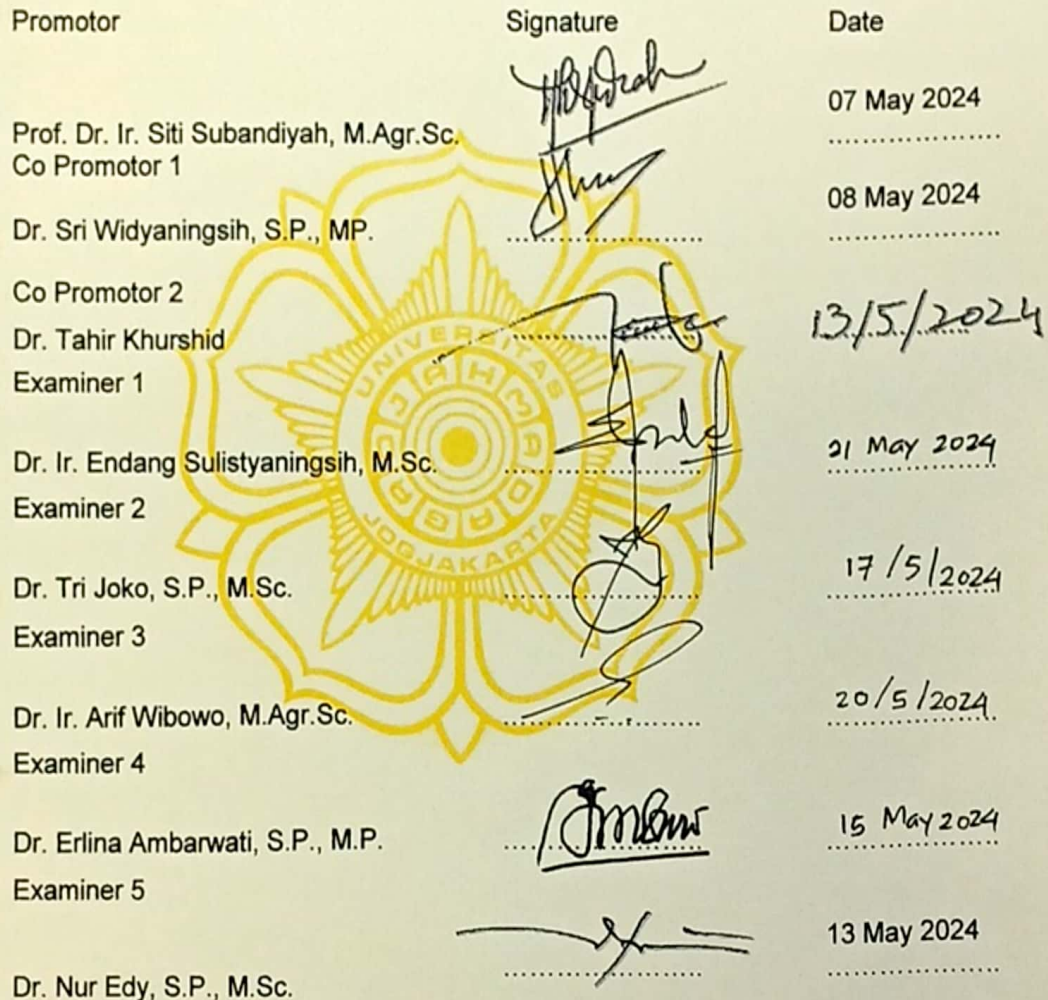 Promotor Signature Date
07 May 2024
Prof. Dr. Ir. Siti Subandiyah, M.Agr.Sc.
Co Promotor 1
08 May 2024
Dr. Sri Widyaningsih, S.P., MP.
Co Promotor 2
Dr. Tahir Khurshid 13/5/2024
Examiner 1
Dr. Ir. Endang Sulistyaningsih, M.Sc. 21 May 2024
Examiner 2
Dr. Tri Joko, S.P., M.Sc. 17/5/2024
Examiner 3
Dr. Ir. Arif Wibowo, M.Agr.Sc. 20/5/2024
Examiner 4
Dr. Erlina Ambarwati, S.P., M.P. 15 May 2024
Examiner 5
13 May 2024
Dr. Nur Edy, S.P., M.Sc.
UNIVERSITAS
GADJAH MADA
JOGJAKARTA